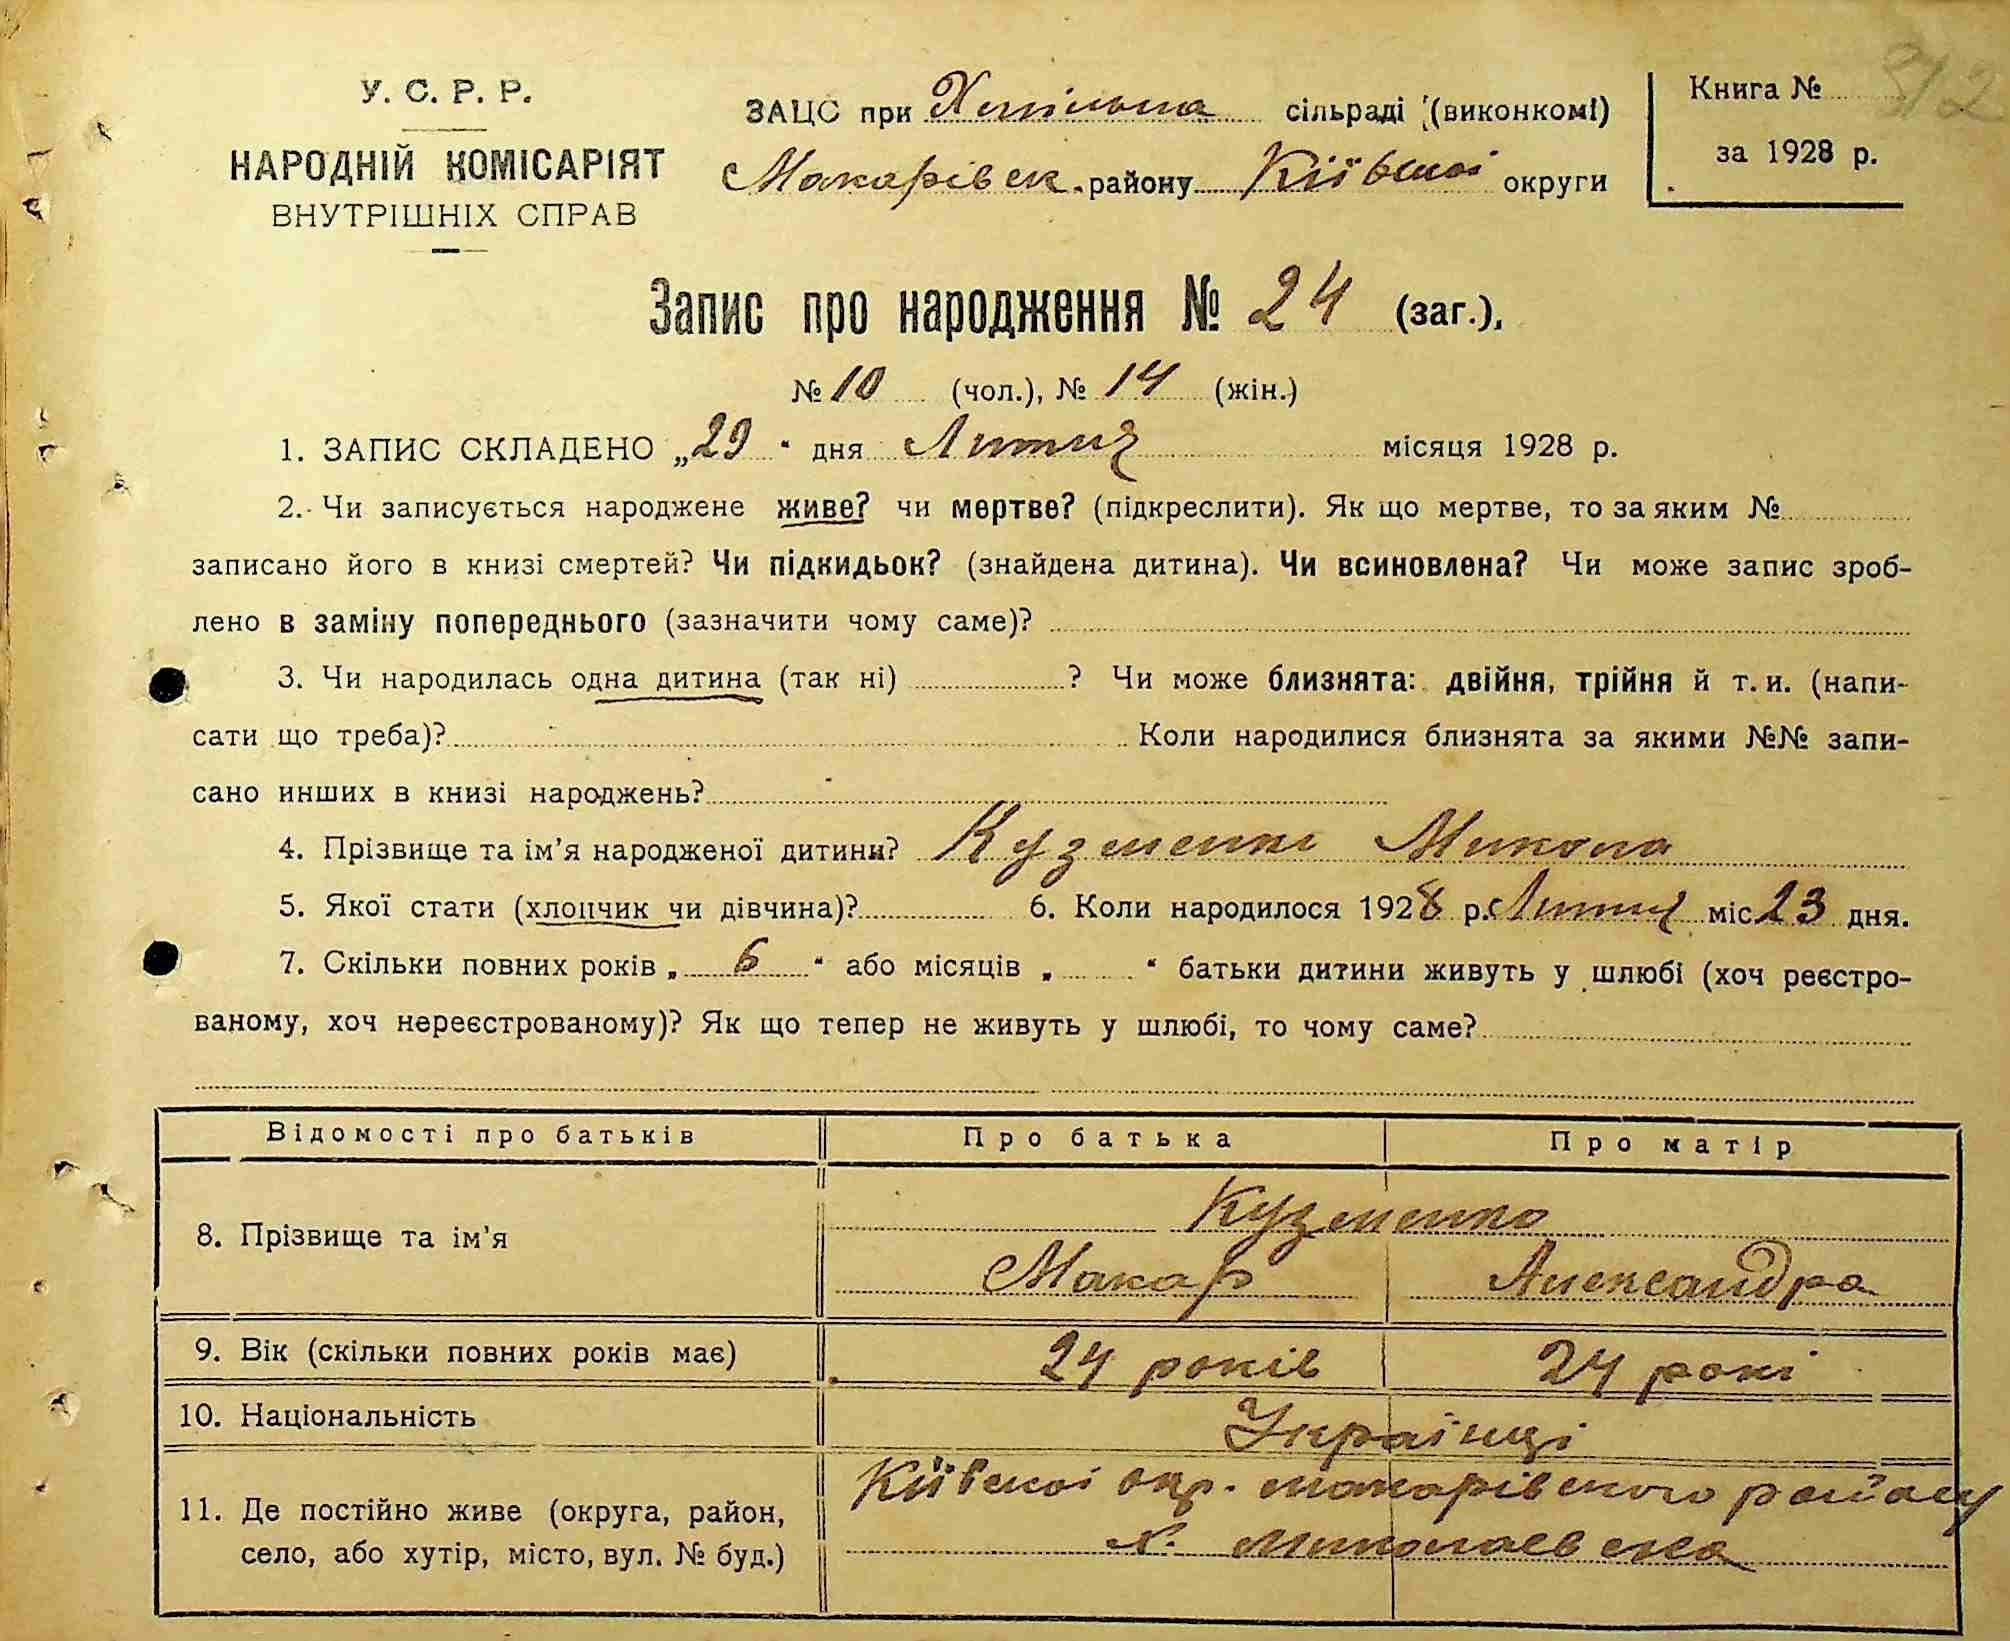 У. С. Р. Р.
НАРОДНІЙ КОМІСАРІЯТ
ВНУТРІШНІХ СПРАВ
ЗАЦС при сільраді (виконкомі)
Макарівск. району Київськоі округи
Книга №
за 1928 р.
Запис про народження № 24 (заг.),
№ 10 (чол.), № 14 (жін.)
1. ЗАПИС СКЛАДЕНО „29" дня Лютих місяця 1928 р.
2. Чи записується народжене живе? чи мертве? (підкреслити). Як що мертве, то за яким №
записано його в книзі смертей? Чи підкидьок? (знайдена дитина). Чи всиновлена? Чи може запис зроб-
лено в заміну попереднього (зазначити чому саме)?
3. Чи народилась одна дитина (так ні) ? Чи може близнята: двійня, трійня й т. и. (напи-
сати що треба)? Коли народилися близнята за якими №№ запи-
сано инших в книзі народжень?
4. Прізвище та ім'я народженої дитини? Кузменко Микола
5. Якої стати (хлопчик чи дівчина)? 6. Коли народилося 1928 р. Лютих міс 23 дня.
7. Скільки повних років „ 6 " або місяців „ " батьки дитини живуть у шлюбі (хоч реєстро-
ваному, хоч нереєстрованому)? Як що тепер не живуть у шлюбі, то чому саме?
Відомості про батьків Про батька Про матір
8. Прізвище та ім'я Кузменко
Макар Александра
9. Вік (скільки повних років має) 24 років 24 рокі
10. Національність Українці
11. Де постійно живе (округа, район, Київскоі окр. макарівского району
село, або хутір, місто, вул. № буд.) х. Миколаевска